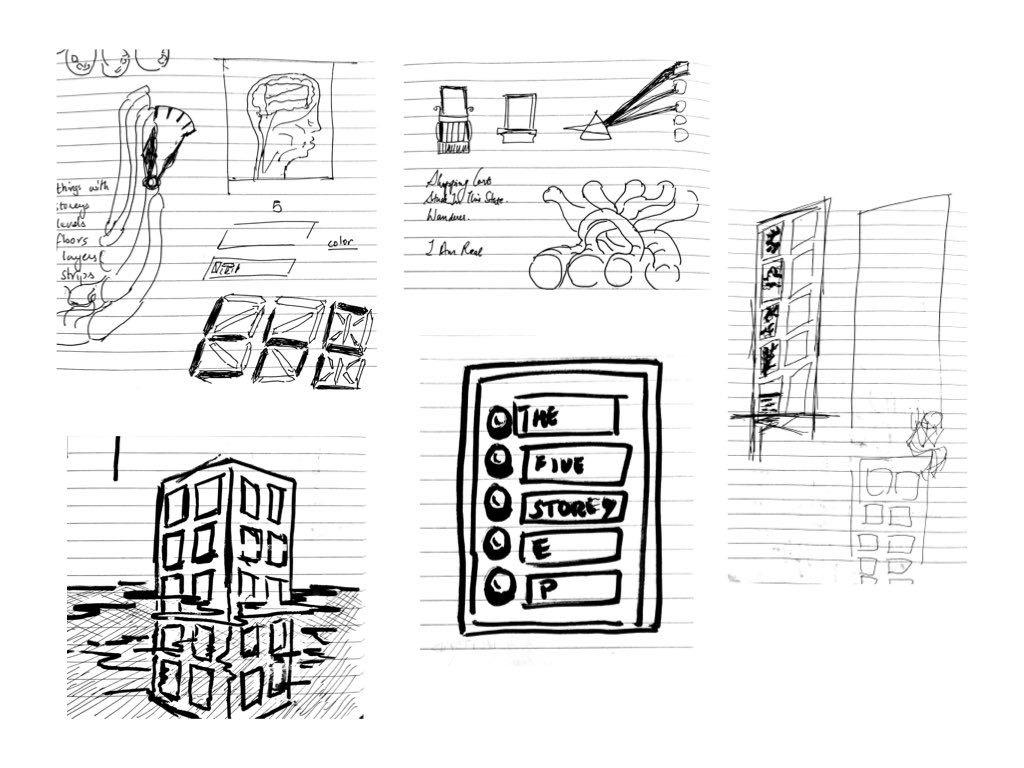 things with
storeys
levels
floors
layers
strips
5
color
Shopping Cart
Stuck In This State.
Wanderer.
I Am Real
THE
FIVE
STOREY
E
P